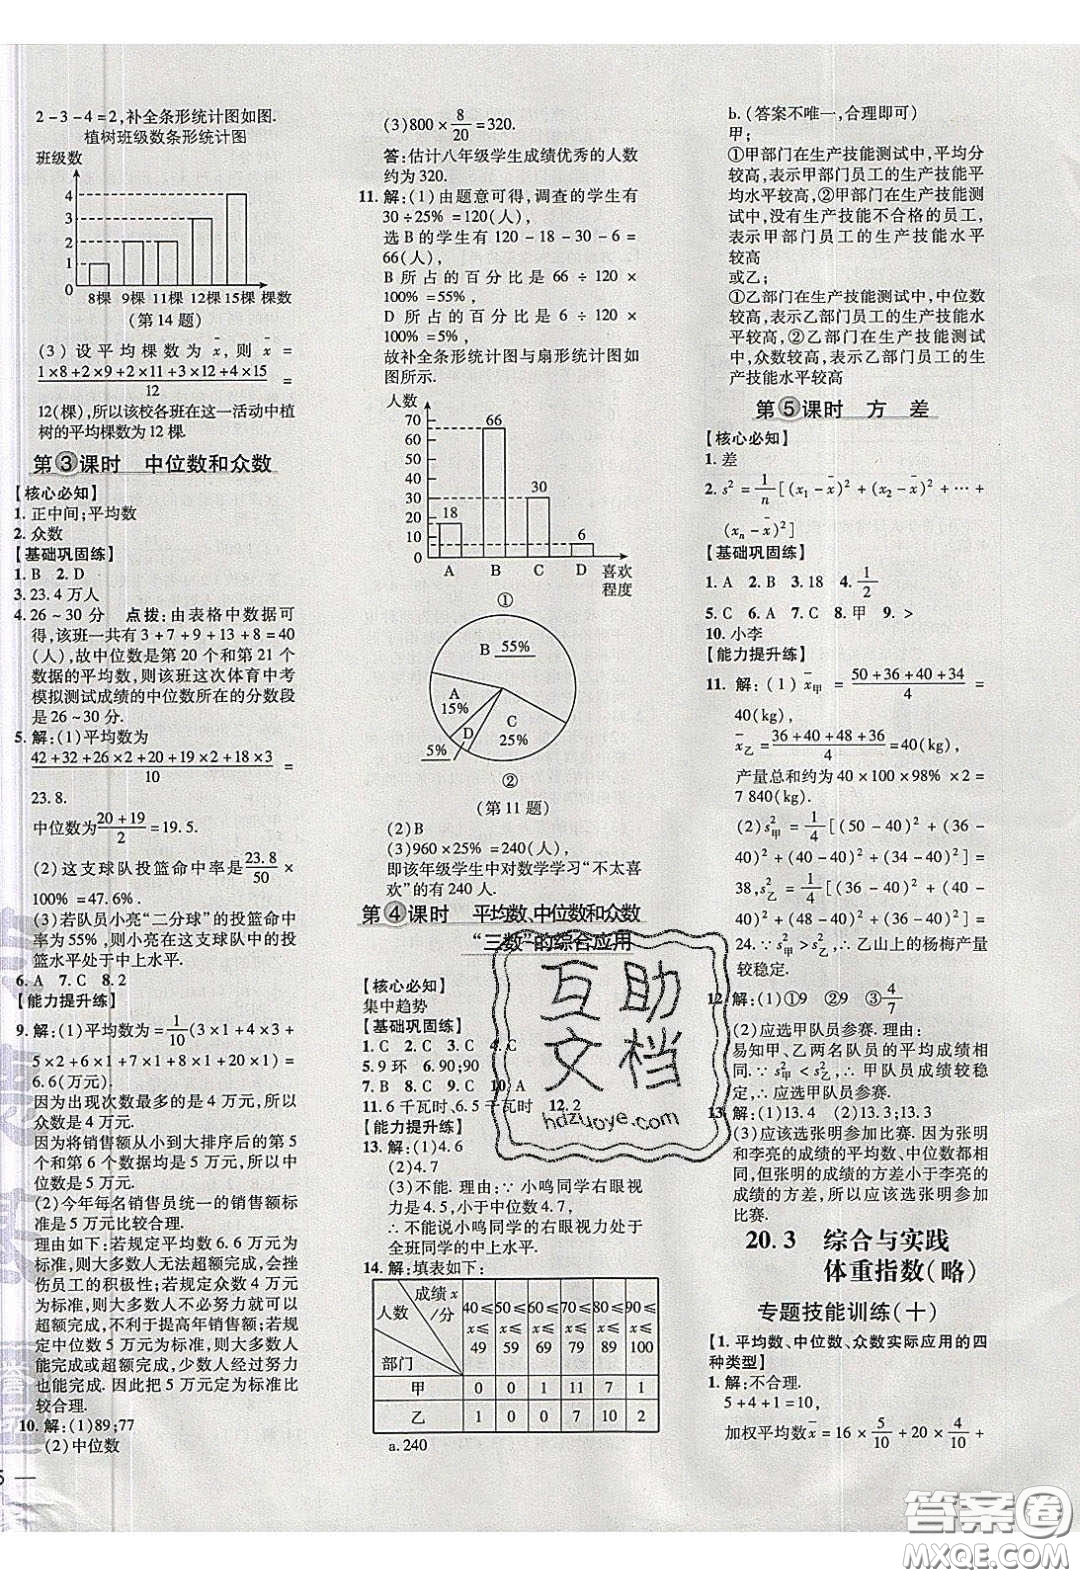 2-3-4=2,补全条形统计图如图.
植树班级数条形统计图
班级数
4
3
2
1
0
8棵 9棵 11棵 12棵 15棵 棵数
(第14题)
(3)设平均棵数为x̄,则x̄=
(1×8+2×9+2×11+3×12+4×15)/12=
12(棵),所以该校各班在这一活动中植
树的平均棵数为12棵.
第③课时 中位数和众数
【核心必知】
1. 正中间;平均数
2. 众数
【基础巩固练】
1. B 2. D
3. 23.4万人
4. 26~30分 点拨:由表格中数据可
得,该班一共有3+7+9+13+8=40
(人),故中位数是第20个和第21个
数据的平均数,则该班这次体育中考
模拟测试成绩的中位数所在的分数段
是26~30分.
5. 解:(1)平均数为
(42+32+26×2+20+19×2+18×3)/10=
23.8.
中位数为(20+19)/2=19.5.
(2)这支球队投篮命中率是23.8/50×
100%=47.6%.
(3)若队员小亮“二分球”的命中率
为55%,则小亮在这支球队中的投
篮水平处于中上水平.
6. A 7. C 8. 2
【能力提升练】
9. 解:(1)平均数为=1/10(3×1+4×3+
5×2+6×1+7×1+8×1+20×1)=
6.6(万元).
因为出现次数最多的是4万元,所以
众数是4万元.
因为将销售额从小到大排序后的第5
个和第6个数据均是5万元,所以中
位数是5万元.
(2)今年每名销售员统一的销售额标
准是5万元比较合理.
理由如下:若规定平均数6.6万元为
标准,则大多数人无法超额完成,会挫
伤员工的积极性;若规定众数4万元
为标准,则大多数人不必努力就可以
超额完成,不利于提高年销售额;若规
定中位数5万元为标准,则大多数人
能完成或超额完成,少数人经过努力
也能完成.因此把5万元定为标准比
较合理.
10. 解:(1)89;77
(2)中位数
(3)800×8/20=320.
答:估计八年级学生成绩优秀的人数
约为320.
11. 解:(1)由题意可得,调查的学生有
30÷25%=120(人),
选B的学生有120-18-30-6=
66(人),
B所占的百分比是66÷120×
100%=55%,
D所占的百分比是6÷120×
100%=5%,
故补全条形统计图与扇形统计图如
图所示.
人数
70
60
50
40
30
20
10
0
18
66
30
6
A B C D 喜欢
程度
①
B 55%
A
15%
D
5%
C
25%
②
(第11题)
(2)B
(3)960×25%=240(人),
即该年级学生中对数学学习“不太喜
欢”的有240人.
第④课时 平均数、中位数和众数
“三数”的综合应用
【核心必知】
集中趋势
【基础巩固练】
1. C 2. C 3. C 4. C
5. 9环 6. 90;90
7. B 8. C 9. C 10. A
11. 6千瓦时、6.5千瓦时 12. 2
【能力提升练】
13. 解:(1)4.6
(2)4.7
(3)不能. 理由:∵小鸣同学右眼视
力是4.5,小于中位数4.7,
∴不能说小鸣同学的右眼视力处于
全班同学的中上水平.
14. 解:填表如下:
成绩x/分 人数 部门 40≤x≤49 50≤x≤59 60≤x≤69 70≤x≤79 80≤x≤89 90≤x≤100
甲 0 0 1 11 7 1
乙 1 0 0 7 10 2
a. 240
b. (答案不唯一,合理即可)
甲;
①甲部门在生产技能测试中,平均分
较高,表示甲部门员工的生产技能平
均水平较高,②甲部门在生产技能测
试中,没有生产技能不合格的员工,
表示甲部门员工的生产技能水平
较高
或乙;
①乙部门在生产技能测试中,中位数
较高,表示乙部门员工的生产技能水
平较高,②乙部门在生产技能测试中,
众数较高,表示乙部门员工的生
产技能水平较高
第⑤课时 方 差
【核心必知】
1. 差
2. s²=1/n[(x₁-x̄)²+(x₂-x̄)²+…+
(xₙ-x̄)²]
【基础巩固练】
1. A 2. B 3. 18 4. 1/2
5. C 6. A 7. C 8. 甲 9. >
10. 小李
【能力提升练】
11. 解:(1)x̄甲=(50+36+40+34)/4=
40(kg),
x̄乙=(36+40+48+36)/4=40(kg),
产量总和约为40×100×98%×2=
7 840(kg).
(2)s²甲=1/4[(50-40)²+(36-
40)²+(40-40)²+(34-40)²]=
38,s²乙=1/4[(36-40)²+(40-
40)²+(48-40)²+(36-40)²]=
24.∵s²甲>s²乙,∴乙山上的杨梅产量
较稳定.
12. 解:(1)①9 ②9 ③4/7
(2)应选甲队员参赛. 理由:
易知甲、乙两名队员的平均成绩相
同.∵s²甲<s²乙,∴甲队员的成绩较稳
定.∴应选甲队员参赛.
13. 解:(1)13.4 (2)13.3;13.3
(3)应该选张明参加比赛. 因为张明
和李亮的成绩的平均数、中位数都相
同,但张明的成绩的方差小于李亮的
成绩的方差,所以应该选张明参加
比赛.
20.3 综合与实践
体重指数(略)
专题技能训练(十)
【1. 平均数、中位数、众数实际应用的四
种类型】
1. 解:不合理.
5+4+1=10,
加权平均数x̄=16×5/10+20×4/10+
互助
文档
hdzuoye.com
答案圈
MXQE.COM